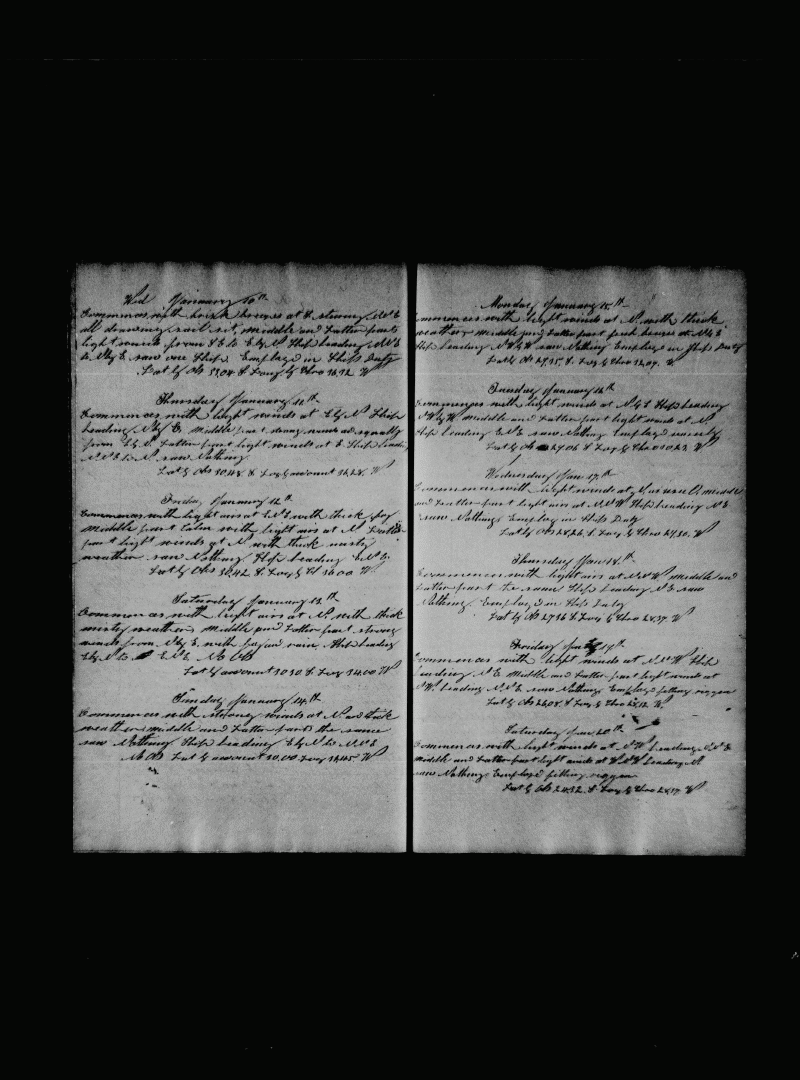 Wed January 10th
Commences with brisk breezes at S steering N E
all drawing sail set, middle and Latter parts
light winds from S E to E by N Ship heading N N E
to N by E saw one Ship Employed in Ships Duty
Lat by Obs 33,08 S Long by Chro 36,32 W
Thursday January 11th
Commences with light winds at E by N Ship
heading N by E Middle part strong winds and squally
from E by N Latter part light winds at E Ship heading
N N E to N saw Nothing
Lat by Obs 30,48 S Long by account 36,28 W
Friday January 12th
Commences with light airs at E N E with thick fog
Middle part Calm with light airs at N Latter
part light winds at N with thick misty
weather saw Nothing Ship heading E N E
Lat by Obs 30,42 S Long by Ch 36,00 W
Saturday January 13th
Commences with light airs at N with thick
misty weather Middle and Latter part strong
winds from N by E with fog and rain Ship heading
E by N to E N E No Obs
Lat by account 30,30 S Long 34,00 W
Sunday January 14th
Commences with Strong winds at N and thick
weather middle and Latter parts the same
saw Nothing Ship heading E by N to N N E
No Obs Lat by account 30,00 Long 34,45 W
Monday January 15th
Commences with light winds at N with thick
weather Middle and Latter part fresh breeze at N by E
Ship heading N W by W saw Nothing Employed in Ships Duty
Lat by Obs 27,35 S Long by Chro 32,09 W
Tuesday January 16th
Commences with light winds at N by E Ship heading
N W by W Middle and Latter part light winds at N
Ship heading E N E saw Nothing Employed
Lat by Obs 27,06 S Long by Chro 30,23 W
Wednesday Jan 17th
Commences with light winds at middle
and Latter part light airs at N N W Ship heading N E
saw Nothing Employ in Ships Duty
Lat by Obs 28,26 S Long by Chro 29,30 W
Thursday Jan 18th
Commences with light airs at N N W Middle and
Latter part the same Ship heading N E saw
Nothing Employed in Ships Duty
Lat by Obs 27,36 S Long by Chro 28,37 W
Friday Jan 19th
Commences with light winds at N N W Ship
heading N E Middle and Latter part light winds at
N W heading N N E saw Nothing Employed fitting riggen
Lat by Obs 26,08 S Long by Chro 28,12 W
Saturday Jan 20th
Commences with light winds at N W heading N N E
Middle and Latter part light winds at W N W heading N
saw Nothing Employed fitting riggen
Lat by Obs 24,32 S Long by Chro 28,17 W